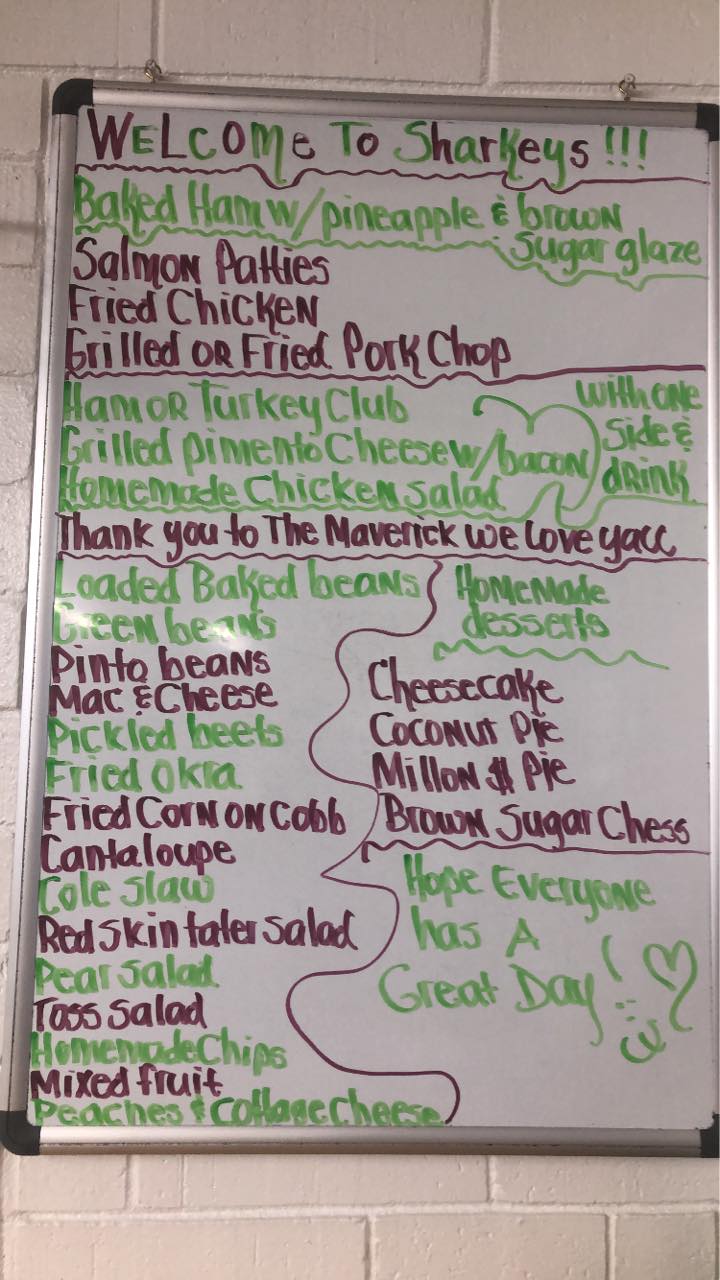 WELCOME To Sharkeys !!!
Baked Ham w/ pineapple & brown
Sugar glaze
Salmon Patties
Fried Chicken
Grilled OR Fried Pork Chop
Ham OR Turkey Club
Grilled pimento Cheese w/bacon
Homemade Chicken Salad
with one
Side &
drink
Thank you to The Maverick we love yall
Loaded Baked beans
Green beans
Pinto beans
Mac & Cheese
Pickled beets
Fried Okra
Fried Corn on Cobb
Cantaloupe
Cole Slaw
Red Skin tater Salad
Pear Salad
Toss Salad
Homemade Chips
Mixed fruit
Peaches & Cottage Cheese
Homemade
desserts
Cheesecake
Coconut Pie
Millon $ Pie
Brown Sugar Chess
Hope Everyone
has A
Great Day!